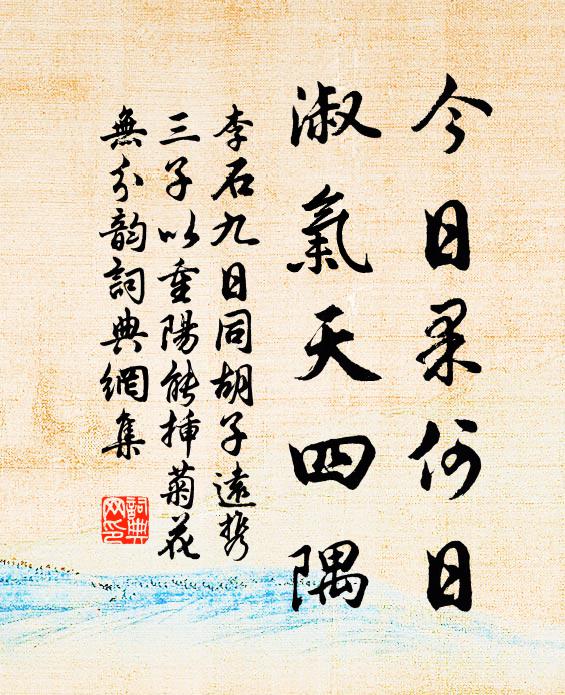 今日果何日
淑氣天四隅
李石九日同胡子遠携
三子以重陽能插菊花
無分韵詞典網集
詞典
网印